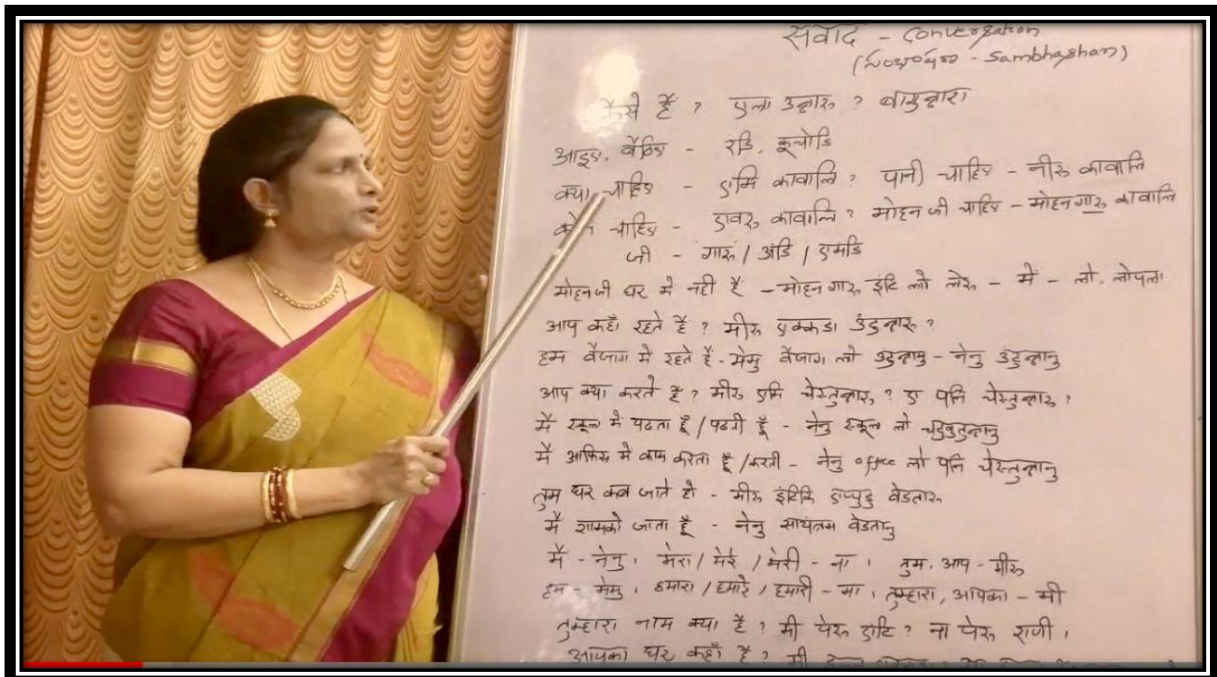 संवाद - Conversation
(సంభాషణ - Sambhashan)
कैसे हैं ? एला उन्नारु ? बागुन्नारा
आइए, बैठिए - रंडि, कूचोंडि
क्या चाहिए - एमि कावालि ? पानी चाहिए - नीरु कावालि
कौन चाहिए - एवरु कावालि ? मोहन जी चाहिए - मोहन गारु कावालि
जी - गारु / अंडि / एमंडि
मोहन जी घर में नहीं हैं - मोहन गारु इंटि लो लेरु - में - लो, लोपला
आप कहाँ रहते हैं ? मीरु एक्कडा उंटुन्नारु ?
हम वैजाग में रहते हैं - मेमु वैजाग लो उंटुन्नामु - नेनु उंटुन्नानु
आप क्या करते हैं ? मीरु एमि चेस्तुन्नारु ? ए पनि चेस्तुन्नारु ?
मैं स्कूल में पढता हूँ / पढती हूँ - नेनु स्कूल लो चदुवुतुन्नानु
मैं आफिस में काम करता हूँ / करती - नेनु office लो पनि चेस्तुन्नानु
तुम घर कब जाते हो - मीरु इंटिकि एप्पुडु वेडतारु
मैं शामको जाता हूँ - नेनु सायंत्रम वेडतानु
मैं - नेनु, मेरा / मेरे / मेरी - ना, तुम, आप - मीरु
हम - मेमु, हमारा / हमारे / हमारी - मा, तुम्हारा, आपका - मी
तुम्हारा नाम क्या है ? मी पेरु एंटि ? ना पेरु राणी,
आपका घर कहाँ है ? मी